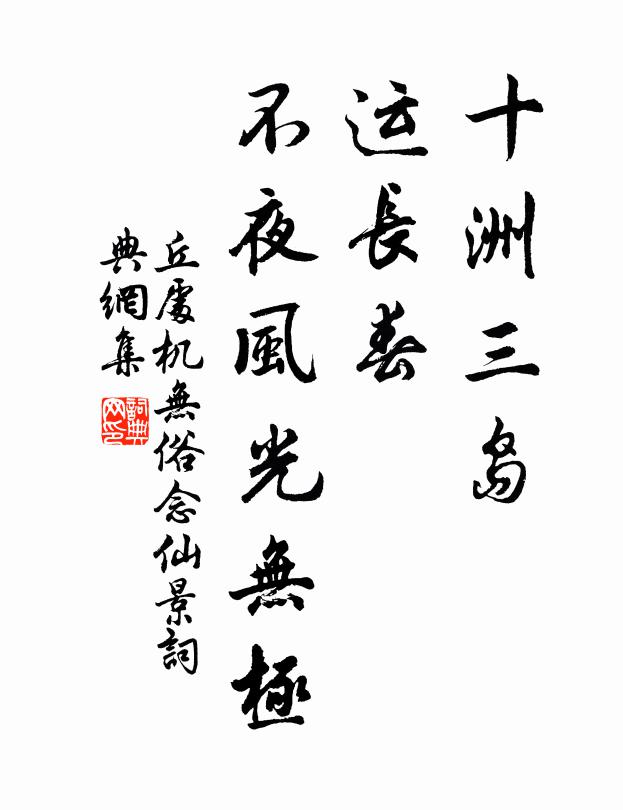 十洲三島
运長春
不夜風光無極
丘處机無俗念仙景詞
典網集
詞典
网印